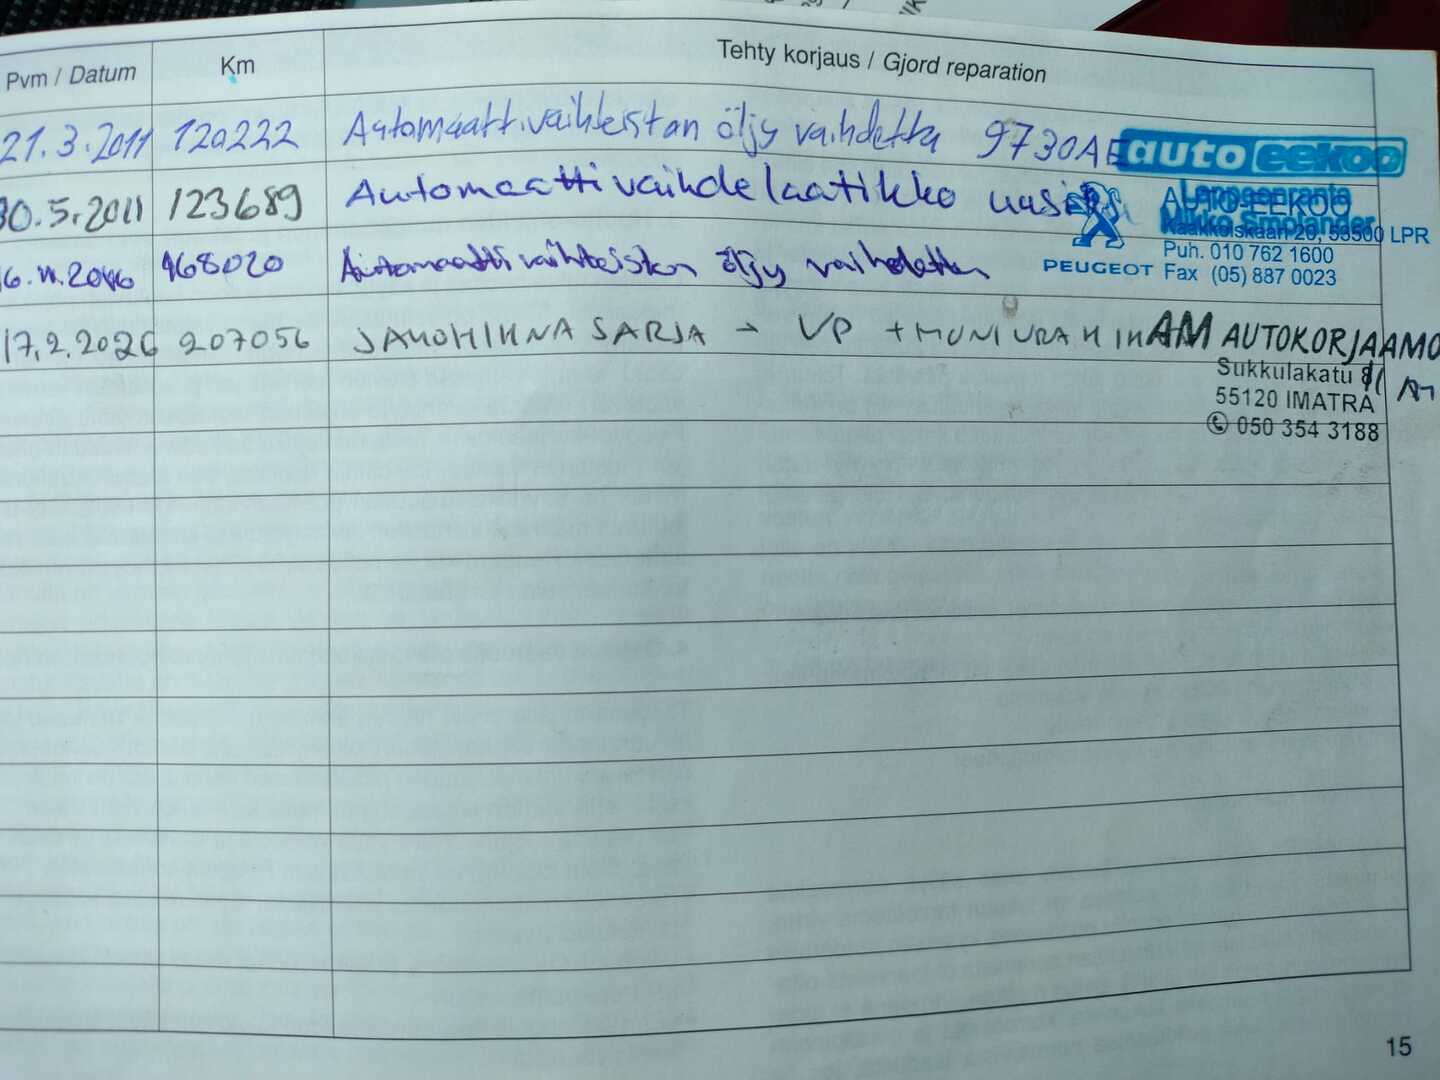 Pvm / Datum Km Tehty korjaus / Gjord reparation
21.3.2011 120222 Automaattivaihteistan öljy vaihdettu 9730AE
auto eekoo
30.5.2011 123689 Automaattivaihdelaatikko uusi
AUTO-EEKOO
Lappeenranta
Mikko Smolander
Kaakkoiskaari 20, 53500 LPR
Puh. 010 762 1600
PEUGEOT Fax (05) 887 0023
168020 Automaattivaihteiston öljy vaihdettu
17.2.2026 207056 JAKOHIHNASARJA → VP + MONIURAHIHNA
AM AUTOKORJAAMO
Sukkulakatu 8
55120 IMATRA
050 354 3188
15